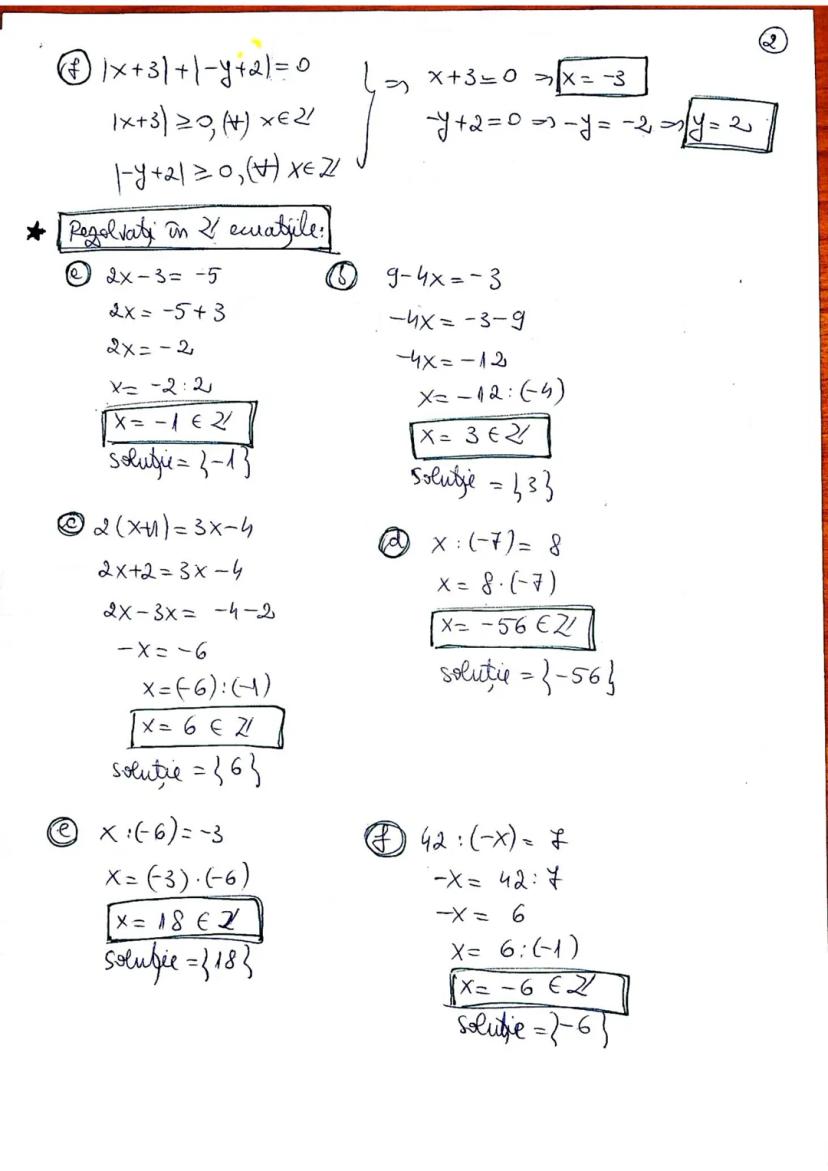 2
f |x+3|+|-y+2|=0 } ⇒ x+3=0 ⇒ x=-3
|x+3|≥0,(∀) x∈ℤ -y+2=0 ⇒ -y=-2 ⇒ y=2
|-y+2|≥0,(∀) x∈ℤ
★ Rezolvați în ℤ ecuațiile:
a 2x-3=-5
2x=-5+3
2x=-2
x=-2:2
x=-1∈ℤ
soluție={-1}
b 9-4x=-3
-4x=-3-9
-4x=-12
x=-12:(-4)
x=3∈ℤ
soluție={3}
c 2(x+1)=3x-4
2x+2=3x-4
2x-3x=-4-2
-x=-6
x=(-6):(-1)
x=6∈ℤ
soluție={6}
d x:(-7)=8
x=8·(-7)
x=-56∈ℤ
soluție={-56}
e x:(-6)=-3
x=(-3)·(-6)
x=18∈ℤ
soluție={18}
f 42:(-x)=7
-x=42:7
-x=6
x=6:(-1)
x=-6∈ℤ
soluție={-6}